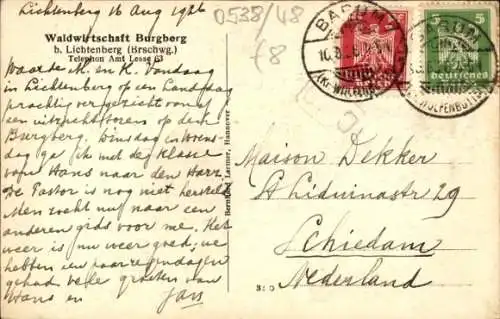 Lichtenberg 16 Aug 1926
0538/48
Waldwirtschaft Burgberg
b. Lichtenberg (Brschwg.)
Telephon Amt Lesse 63
Waarde M. en K. Vandaag
in Lichtenberg op een Landdag
prachtig vergezicht vanaf
een uitzichttoren op den
Burgberg. Dinsdag en Woens
dag ga ik met de klasse
van Hans naar den Harz.
De Pastor is nog niet hersteld
Men zoekt nu naar een
anderen gids voor me. Het
weer is nu weer goed, we
hebben een paar regendagen
gehad. Vele groeten van
Hans en Jan
Bernhard Larmer, Hannover
BARUM
5
5
Maison Dekker
St Liduinastr 29
Schiedam
Nederland